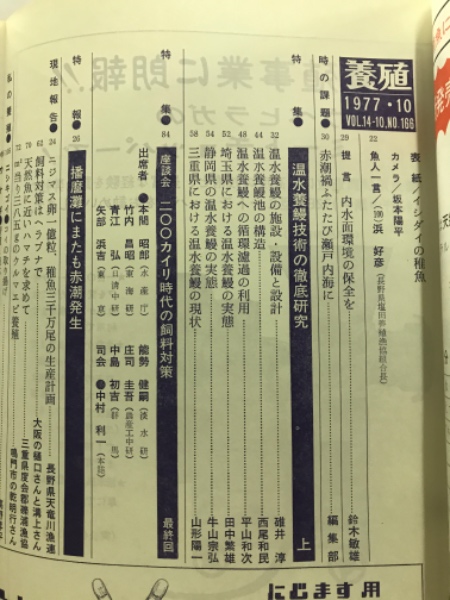 養殖
1977・10
VOL.14-10, NO.166
表紙/イシダイの稚魚
カメラ/坂本陽平
22 魚人一言/(100) 浜 好彦(長野県塩田養殖漁協組合長)
29 提言 内水面環境の保全を 鈴木敏雄
時の課題●30 赤潮禍ふたたび瀬戸内海に 編集部
特集● 温水養鰻技術の徹底研究 上
32 温水養鰻の施設・設備と設計 碓井 淳
44 温水養鰻池の構造 西尾和民
48 温水養鰻への循環濾過の利用 平山和次
52 埼玉県における温水養鰻の実態 田中繁雄
55 静岡県の温水養鰻の実態 牛山宗弘
58 三重県における温水養鰻の現状 山形陽一
特集●84 座談会 二〇〇カイリ時代の飼料対策 最終回
出席者●本間 昭郎(水産庁) 能勢 健嗣(淡水研)
竹内 昌昭(東海研) 庄司 圭吾(農産工中研)
青江 弘(日清中研) 中島 初吉(群馬)
矢部 浜吉(東京) 司会●中村 利一(本誌)
特報●26 播磨灘にまたも赤潮発生
現地報告●24 ニジマス卵一億粒、稚魚三千万尾の生産計画 長野県天竜川漁連
62 飼料対策はヘラブナで 大阪の樋口さんと溝上さん
70 天然魚に近いハマチを求めて 三重県度会郡礫浦漁協
72 ㎡当り三八五gのクルマエビ養殖 鳴門市の乾明行さん
私の養殖●
にじます用